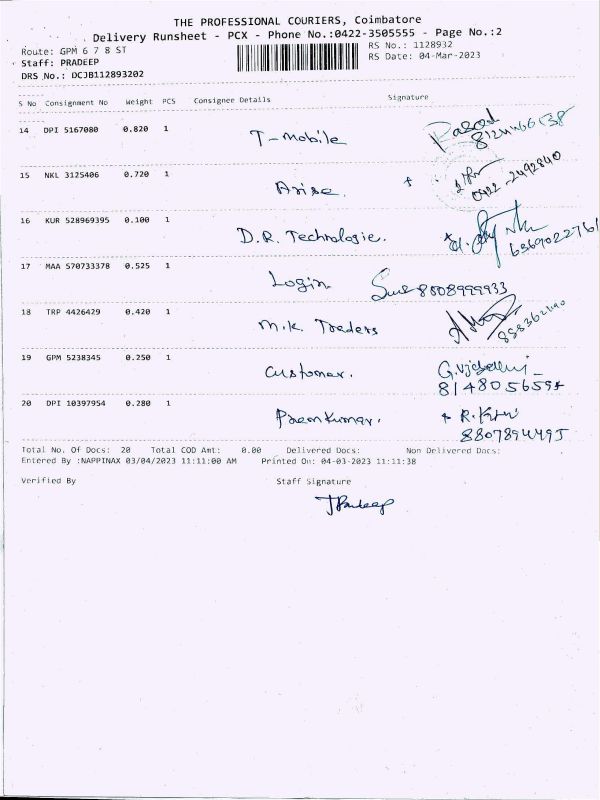 THE PROFESSIONAL COURIERS, Coimbatore
Delivery Runsheet - PCX - Phone No.:0422-3505555 - Page No.:2
Route: GPM 6 7 8 ST
RS No.: 1128932
Staff: PRADEEP
RS Date: 04-Mar-2023
DRS No.: DCJB112893202
S No Consignment No Weight PCS Consignee Details Signature
14 DPI 5167080 0.820 1 T-mobile
15 NKL 3125406 0.720 1 Arise. 0422-2492840
16 KUR 528969395 0.100 1 D.R. Technologie. 6369022761
17 MAA 570733378 0.525 1 Login 8608999933
18 TRP 4426429 0.420 1 M.K. Traders
19 GPM 5238345 0.250 1 Customer.
8148056594
20 DPI 10397954 0.280 1 Premkumar.
8807894495
Total No. Of Docs: 20 Total COD Amt: 0.00 Delivered Docs: Non Delivered Docs:
Entered By :NAPPINAX 03/04/2023 11:11:00 AM Printed On: 04-03-2023 11:11:38
Verified By Staff Signature